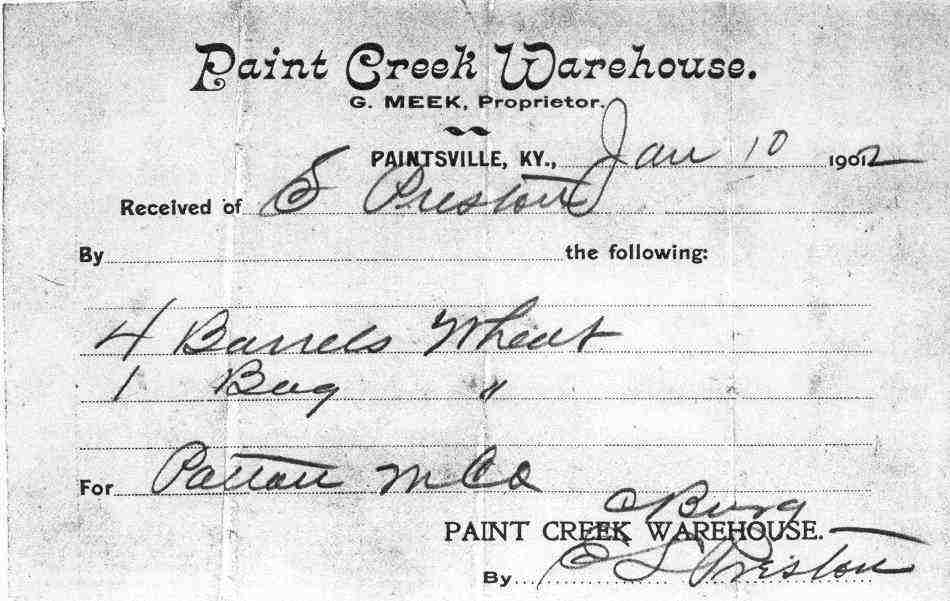 Paint Creek Warehouse.
G. MEEK, Proprietor.
PAINTSVILLE, KY., Jan 10 1902
Received of S Preston
By the following:
4 Barrels Wheat
1 Bag "
For Patton M Co
CBurg
PAINT CREEK WAREHOUSE.
By E L Preston